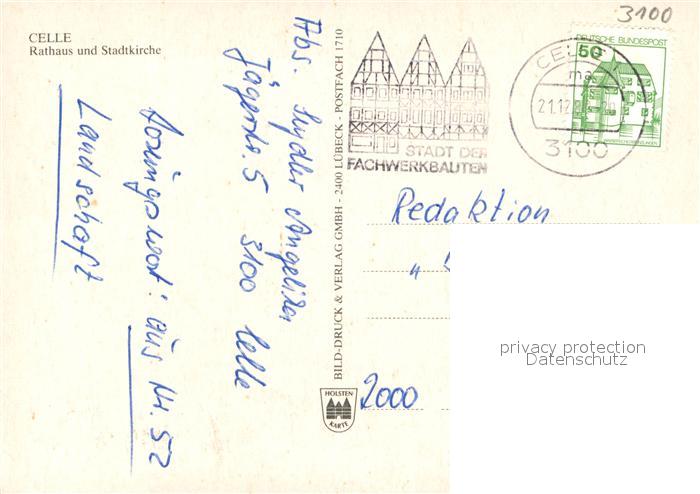 3100
CELLE
Rathaus und Stadtkirche
Abs. Angelika
Jägerstr. 5 3100 Celle
Lösungswort: aus Nr. 52
Landschaft
BILD-DRUCK & VERLAG GMBH - 2400 LÜBECK - POSTFACH 1710
STADT DER
FACHWERKBAUTEN
CELLE
21.12
3100
DEUTSCHE BUNDESPOST
50
Redaktion
"
2000
HOLSTEN
KARTE
privacy protection
Datenschutz